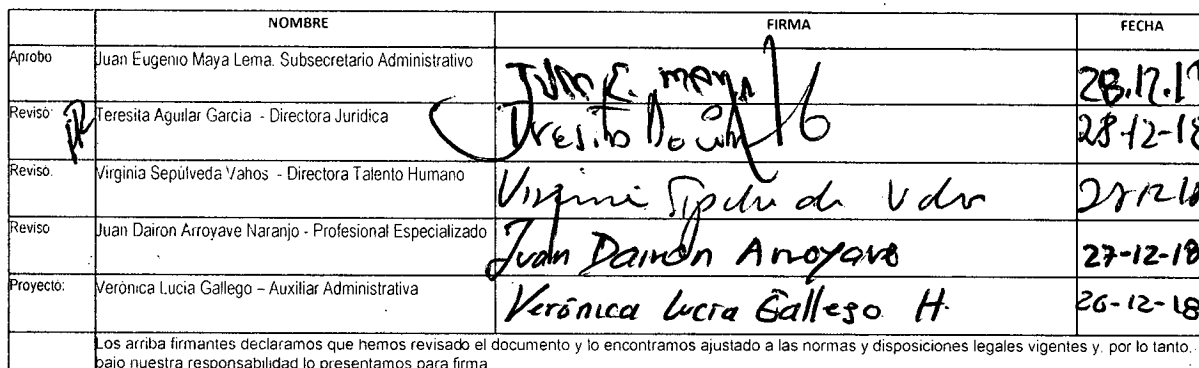 NOMBRE FIRMA FECHA
Aprobo Juan Eugenio Maya Lema. Subsecretario Administrativo Juan E. Maya 28.12.1
Revisó: Teresita Aguilar Garcia - Directora Juridica 28-12-18
Revisó. Virginia Sepúlveda Vahos - Directora Talento Humano Virginia
Reviso Juan Dairon Arroyave Naranjo - Profesional Especializado Juan Dairon Arroyave 27-12-18
Proyectó: Verónica Lucia Gallego – Auxiliar Administrativa Verónica Lucia Gallego H. 26-12-18
Los arriba firmantes declaramos que hemos revisado el documento y lo encontramos ajustado a las normas y disposiciones legales vigentes y, por lo tanto,
bajo nuestra responsabilidad lo presentamos para firma